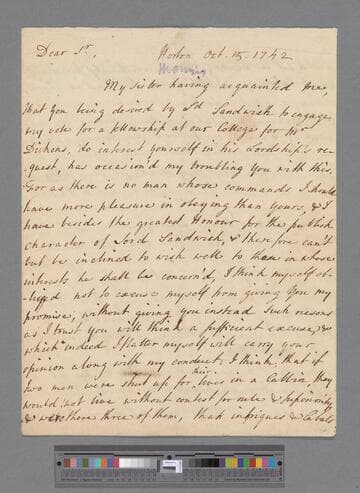 Dear Sr,
Horton Oct. 15. 1742
My Sister having acquainted me,
that you being desired by Ld Sandwich to engage
my vote for a fellowship at our College for Mr
Dickens, do interest yourself in his Lordship's re-
-quest, has occasion'd my troubling you with this.
For as there is no man whose commands I should
have more pleasure in obeying than yours, & I
have besides the greatest Honour for the publick
character of Lord Sandwich, & therefore can't
but be inclined to wish well to them in whose
interests he shall be concern'd, I think myself ob-
-liged not to excuse myself from giving you my
promise, without giving you instead such reasons
as I trust you will think a sufficient excuse, &
which indeed I flatter myself will carry your
opinion along with my conduct. I think, that if
two men were shut up for their lives in a Cabbin, they
would not live without contest for rule & superiority
& were there three of them, that intrigues & Cabals